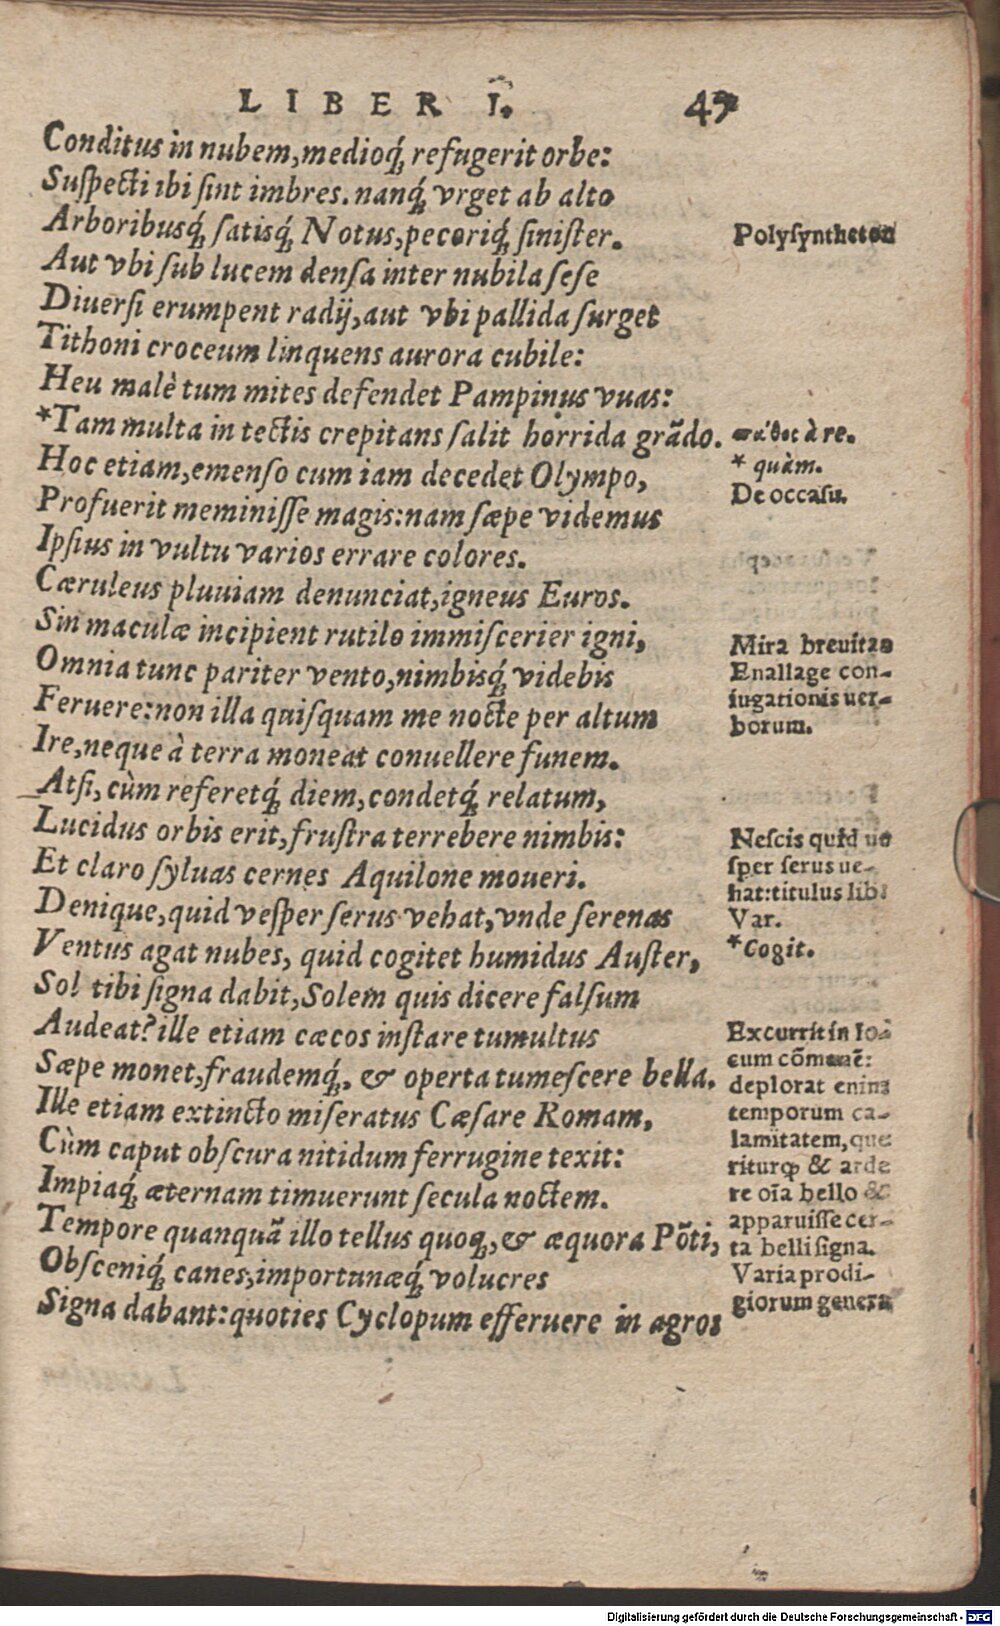 LIBER I. 47
Conditus in nubem, medioq́; refugerit orbe:
Suſpecti ibi ſint imbres. nanq́; vrget ab alto
Arboribusq́; ſatisq́; Notus, pecoriq́; ſiniſter.
Aut vbi ſub lucem denſa inter nubila ſeſe
Diuerſi erumpent radij, aut vbi pallida ſurget
Tithoni croceum linquens aurora cubile:
Heu malè tum mites defendet Pampinus vuas:
*Tam multa in tectis crepitans ſalit horrida grãdo.
Hoc etiam, emenſo cum iam decedet Olympo,
Profuerit meminiſſe magis: nam ſæpe videmus
Ipſius in vultu varios errare colores.
Cæruleus pluuiam denunciat, igneus Euros.
Sin maculæ incipient rutilo immiſcerier igni,
Omnia tunc pariter vento, nimbisq́; videbis
Feruere: non illa quiſquam me nocte per altum
Ire, neque à terra moneat conuellere funem.
Atſi, cùm referetq́; diem, condetq́; relatum,
Lucidus orbis erit, fruſtra terrebere nimbis:
Et claro ſyluas cernes Aquilone moueri.
Denique, quid veſper ſerus vehat, vnde ſerenas
Ventus agat nubes, quid cogitet humidus Auſter,
Sol tibi ſigna dabit, Solem quis dicere falſum
Audeat? ille etiam cæcos inſtare tumultus
Sæpe monet, fraudemq́;, & operta tumeſcere bella.
Ille etiam extincto miſeratus Cæſare Romam,
Cùm caput obſcura nitidum ferrugine texit:
Impiaq́; æternam timuerunt ſecula noctem.
Tempore quanquã illo tellus quoq;, & æquora Põti,
Obſceniq́; canes, importunæq́; volucres
Signa dabant: quoties Cyclopum efferuere in agros
Polyſyntheton
πάθος à re.
* quàm.
De occaſu.
Mira breuitas
Enallage con-
iugationis uer-
borum.
Neſcis quid ue
ſper ſerus ue-
hat: titulus lib.
Var.
*Cogit.
Excurrit in lo-
cum cõmunẽ:
deplorat enim
temporum ca-
lamitatem, que
riturq; & arde
re oĩa bello &
apparuiſſe cer-
ta belli ſigna.
Varia prodi-
giorum genera
Digitalisierung gefördert durch die Deutsche Forschungsgemeinschaft - DFG